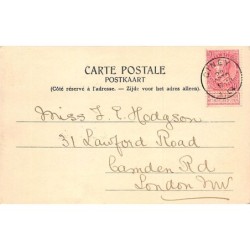 CARTE POSTALE
POSTKAART
(Côté réservé à l'adresse. - Zijde voor het adres alleen.)
Miss F. E. Hodgson
31 Lawford Road
Camden Rd
London NW